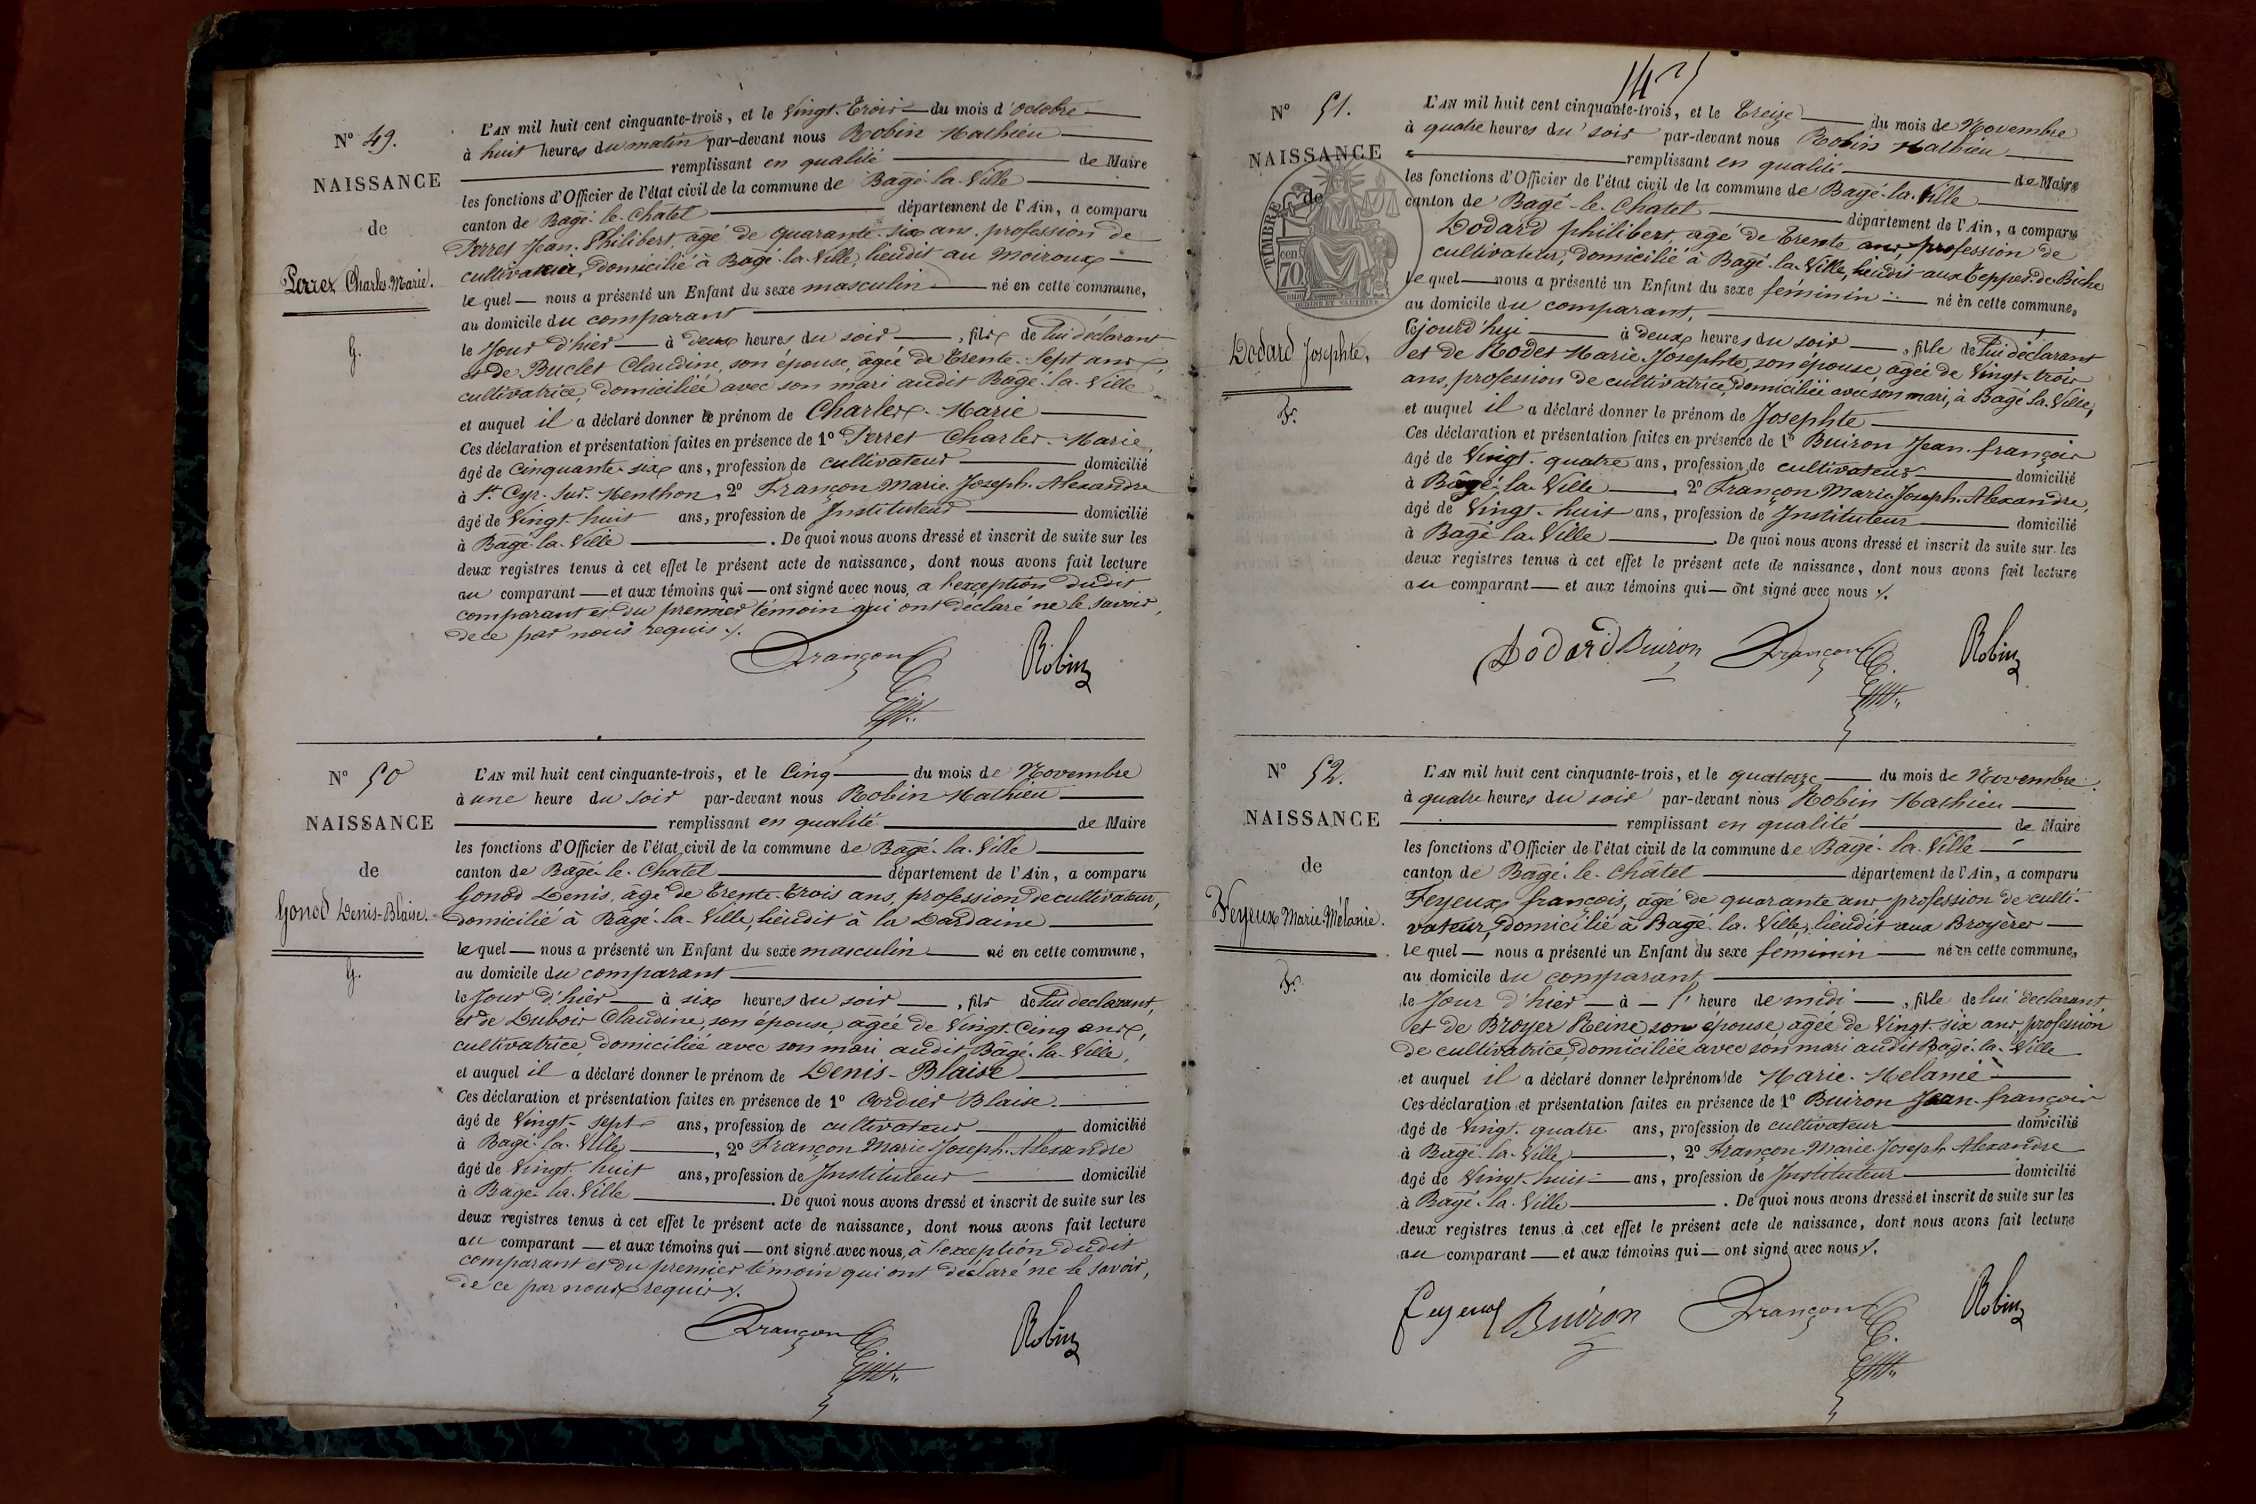 N° 49.
NAISSANCE
de
Perret Charles-Marie.
G.
L'AN mil huit cent cinquante-trois, et le Vingt-trois du mois d'octobre
à huit heures du matin par-devant nous Robin Mathieu
remplissant en qualité de Maire
les fonctions d'Officier de l'état civil de la commune de Bagé-la-Ville
canton de Bagé-le-Chatel département de l'Ain, a comparu
Perret Jean-Philibert, âgé de quarante-six ans, profession de
cultivateur, domicilié à Bagé-la-Ville, lieudit au Moiroux
lequel nous a présenté un Enfant du sexe masculin né en cette commune,
au domicile du comparant
le Jour d'hier à deux heures du soir, fils de lui déclarant
et de Buclet Claudine, son épouse, âgée de trente-sept ans,
cultivatrice, domiciliée avec son mari audit Bagé-la-Ville
et auquel il a déclaré donner le prénom de Charles-Marie
Ces déclaration et présentation faites en présence de 1° Perret Charles-Marie
âgé de cinquante-six ans, profession de cultivateur domicilié
à St. Cyr-sur-Menthon, 2° Françon Marie-Joseph-Alexandre
âgé de Vingt-huit ans, profession de Instituteur domicilié
à Bagé-la-Ville. De quoi nous avons dressé et inscrit de suite sur les
deux registres tenus à cet effet le présent acte de naissance, dont nous avons fait lecture
au comparant et aux témoins qui ont signé avec nous, à l'exception dudit
comparant et du premier témoin qui ont déclaré ne le savoir,
de ce par nous requis.
Françon Robin
N° 50
NAISSANCE
de
Gonod Denis-Blaise.
G.
L'AN mil huit cent cinquante-trois, et le Cinq du mois de Novembre
à une heure du soir par-devant nous Robin Mathieu
remplissant en qualité de Maire
les fonctions d'Officier de l'état civil de la commune de Bagé-la-Ville
canton de Bagé-le-Chatel département de l'Ain, a comparu
Gonod Denis, âgé de trente-trois ans, profession de cultivateur,
domicilié à Bagé-la-Ville, lieudit à la Dardaine
lequel nous a présenté un Enfant du sexe masculin né en cette commune,
au domicile du comparant
le Jour d'hier à six heures du soir, fils de lui déclarant,
et de Dubois Claudine, son épouse, âgée de Vingt-Cinq ans,
cultivatrice, domiciliée avec son mari audit Bagé-la-Ville,
et auquel il a déclaré donner le prénom de Denis-Blaise
Ces déclaration et présentation faites en présence de 1° Cordier Blaise
âgé de Vingt-sept ans, profession de cultivateur domicilié
à Bagé-la-Ville, 2° Françon Marie-Joseph-Alexandre
âgé de Vingt-huit ans, profession de Instituteur domicilié
à Bagé-la-Ville. De quoi nous avons dressé et inscrit de suite sur les
deux registres tenus à cet effet le présent acte de naissance, dont nous avons fait lecture
au comparant et aux témoins qui ont signé avec nous, à l'exception dudit
comparant et du premier témoin qui ont déclaré ne le savoir,
de ce par nous requis.
Françon Robin
N° 51.
NAISSANCE
de
TIMBRE
70
Dodard Josephte,
F.
L'AN mil huit cent cinquante-trois, et le Treize du mois de Novembre
à quatre heures du soir par-devant nous Robin Mathieu
remplissant en qualité de Maire
les fonctions d'Officier de l'état civil de la commune de Bagé-la-Ville
canton de Bagé-le-Chatel département de l'Ain, a comparu
Dodard philibert, âgé de trente ans, profession de
cultivateur, domicilié à Bagé-la-Ville, lieudit aux Teppes-de-Biche
lequel nous a présenté un Enfant du sexe féminin né en cette commune,
au domicile du comparant,
Cejourd'hui à deux heures du soir, fille de lui déclarant
et de Rodet Marie-Josephte, son épouse, âgée de Vingt-trois
ans, profession de cultivatrice, domiciliée avec son mari, à Bagé-la-Ville,
et auquel il a déclaré donner le prénom de Josephte
Ces déclaration et présentation faites en présence de 1° Buiron Jean-françois
âgé de Vingt-quatre ans, profession de cultivateur domicilié
à Bagé-la-Ville, 2° Françon Marie-Joseph-Alexandre,
âgé de Vingt-huit ans, profession de Instituteur domicilié
à Bagé-la-Ville. De quoi nous avons dressé et inscrit de suite sur les
deux registres tenus à cet effet le présent acte de naissance, dont nous avons fait lecture
au comparant et aux témoins qui ont signé avec nous.
Dodard Buiron Françon Robin
N° 52.
NAISSANCE
de
Feyeux Marie-Mélanie.
F.
L'AN mil huit cent cinquante-trois, et le quatorze du mois de Novembre
à quatre heures du soir par-devant nous Robin Mathieu
remplissant en qualité de Maire
les fonctions d'Officier de l'état civil de la commune de Bagé-la-Ville
canton de Bagé-le-Châtel département de l'Ain, a comparu
Feyeux françois, âgé de quarante ans profession de culti-
vateur, domicilié à Bagé-la-Ville, lieudit aux Broyères
lequel nous a présenté un Enfant du sexe feminin né en cette commune,
au domicile du comparant,
le Jour d'hier à l'heure de midi, fille de lui déclarant
et de Broyer Reine son épouse âgée de Vingt-six ans, profession
de cultivatrice, domiciliée avec son mari audit Bagé-la-Ville
et auquel il a déclaré donner les prénoms de Marie-Melanie
Ces déclaration et présentation faites en présence de 1° Buiron Jean-françois
âgé de Vingt-quatre ans, profession de cultivateur domicilié
à Bagé-la-Ville, 2° Françon Marie-Joseph-Alexandre
âgé de Vingt-huit ans, profession de Instituteur domicilié
à Bagé-la-Ville. De quoi nous avons dressé et inscrit de suite sur les
deux registres tenus à cet effet le présent acte de naissance, dont nous avons fait lecture
au comparant et aux témoins qui ont signé avec nous.
Feyeux Buiron Françon Robin